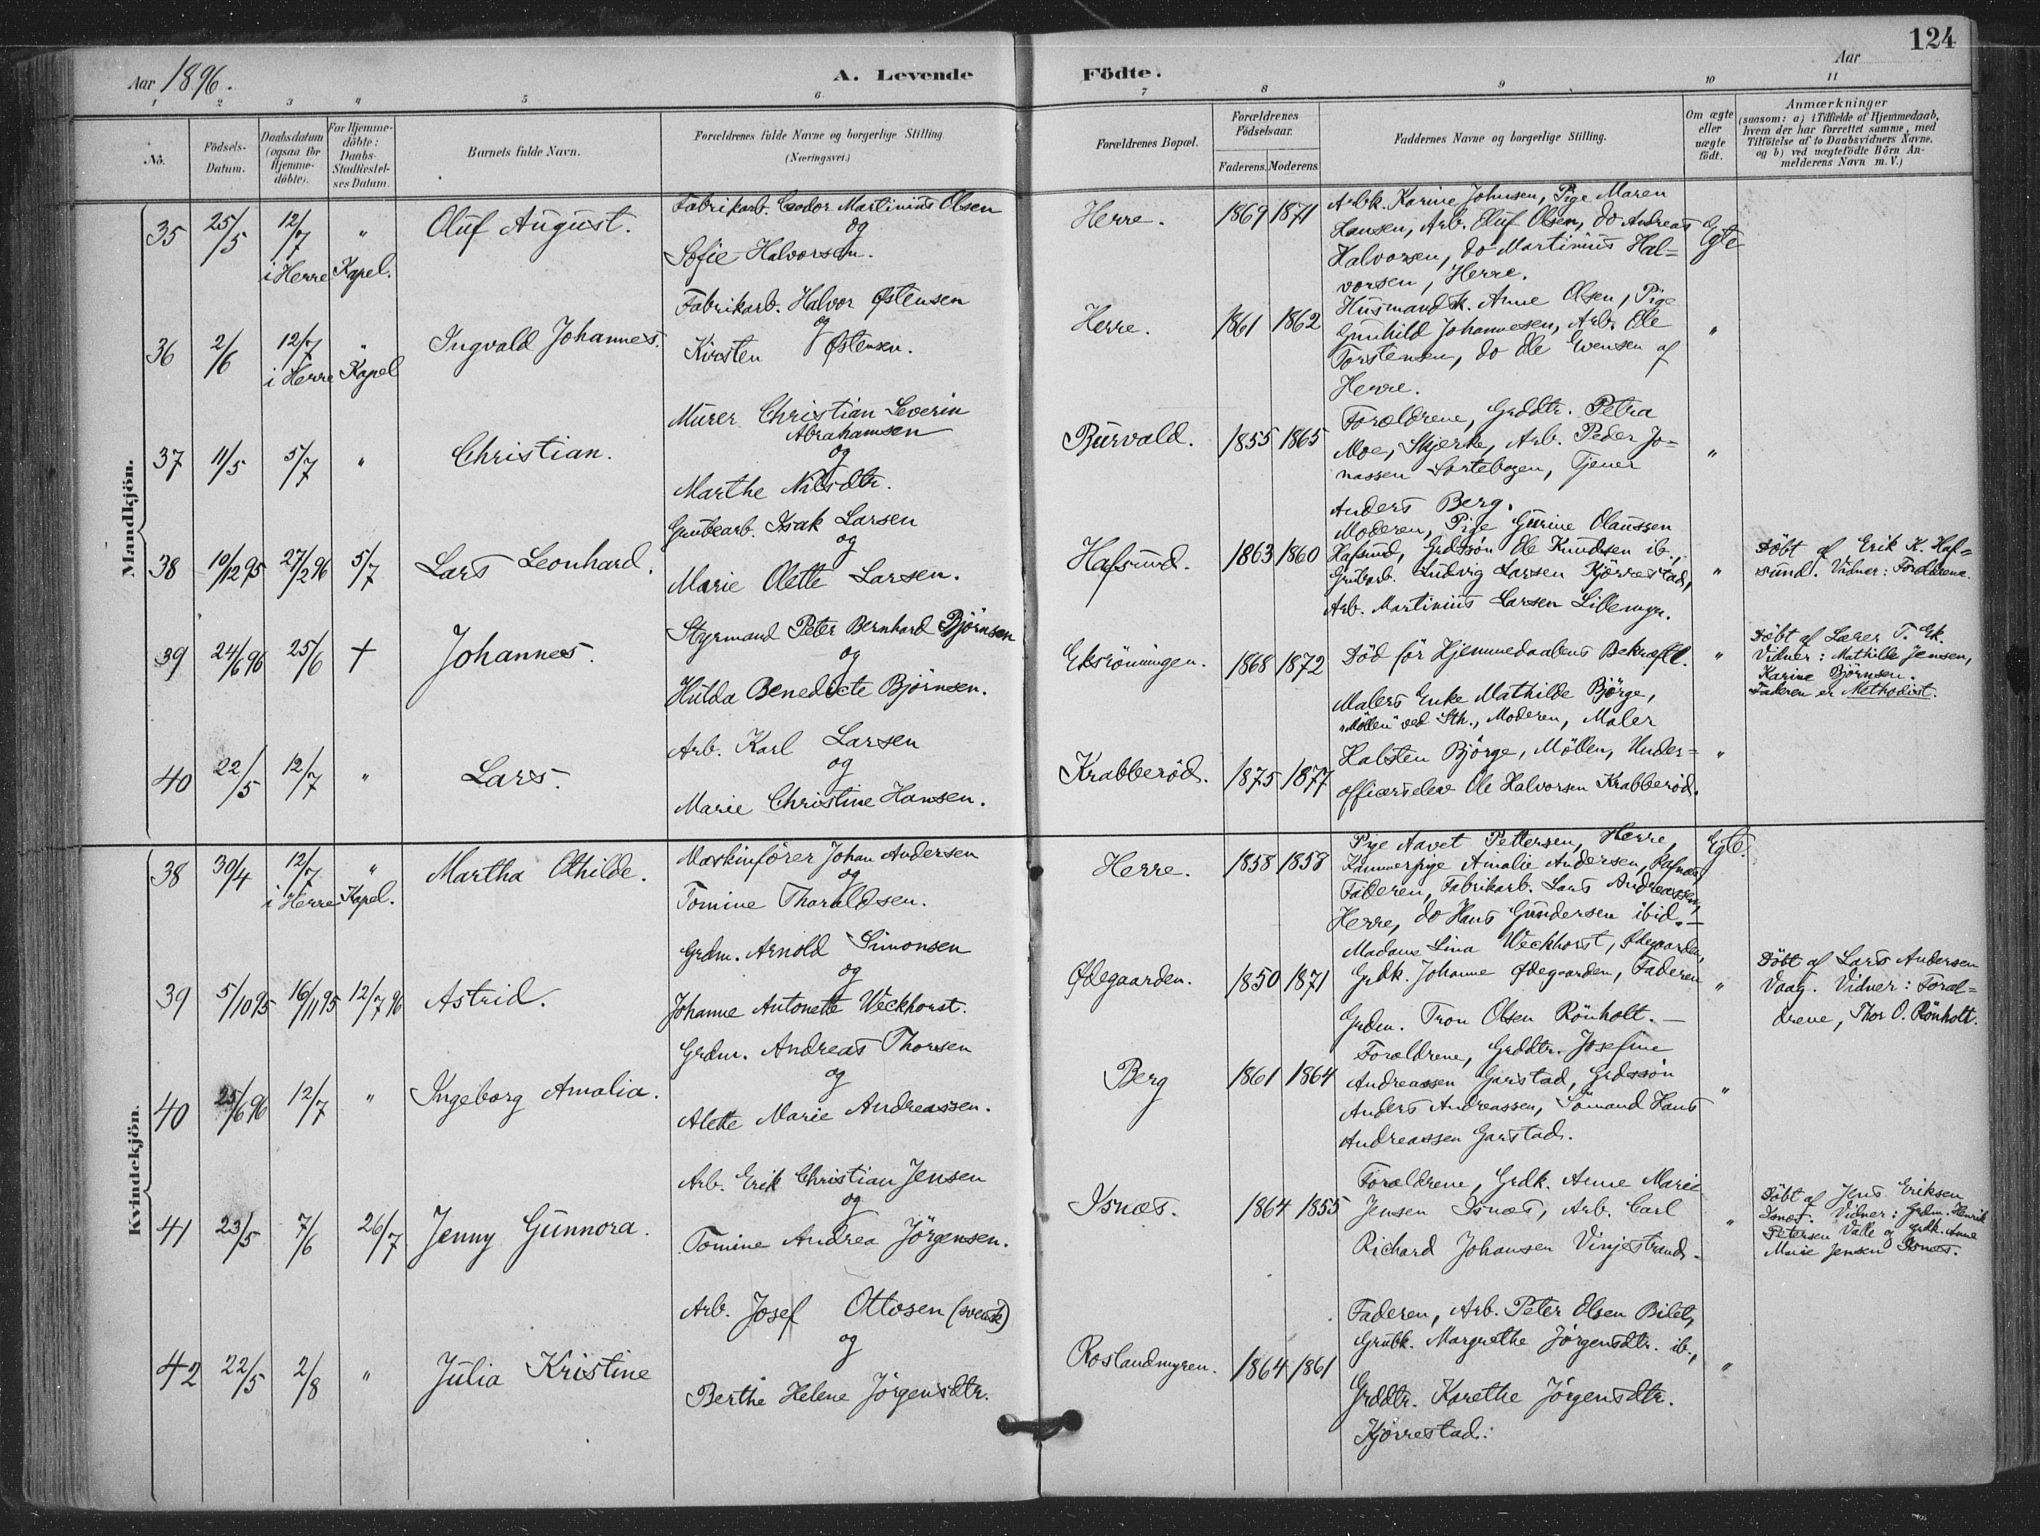 124
Aar 1896.
A. Levende Födte.
Aar
1 2 3 " 5 6 7 8 9 10 11
No.
Födsels-Datum.
Daabsdatum (ogsaa for Hjemme-döbte).
For Hjemme-döbte: Daabs-Stadfæstel-ses Datum.
Barnets fulde Navn.
Forældrenes fulde Navne og borgerlige Stilling.
(Næringsvei.)
Forældrenes Bopæl.
Forældrenes Födselsaar.
Faderens. Moderens.
Faddernes Navne og borgerlige Stilling.
Om ægte eller uægte födt.
Anmærkninger
(saasom: a) i Tilfælde af Hjemmedaab,
hvem der har forrettet samme, med
Tilföielse af to Daabsvidners Navne.
og b) ved uægtefödte Börn An-
melderens Navn m. V.)
Mandkjön.
35 25/5 12/7 i Herre Kapel. " Oluf August.
Fabrikarb. Ceodor Martinius Olsen
og
Sofie Halvorsen.
Herre. 1869 1871
Arbk. Karine Johnsen, Pige Maren
Hansen, Arb. Oluf Olsen, do Andreas
Halvorsen, do Martinius Hal=
vorsen, Herre.
Egte
36 2/6 12/7 i Herre Kapel " Ingvald Johannes.
Fabrikarb. Halvor Østensen
og
Kirsten Østensen.
Herre. 1861 1862
Husmandsk. Anne Olsen, Pige
Gunhild Johannesen, Arb. Ole
Torstensen, do Ole Evensen af
Herre.
"
37 11/5 5/7 " Christian.
Murer Christian Severin
Abrahamsen
og
Marthe Nilsdtr.
Burvald. 1855 1865
Forældrene, Grddtr. Petra
Moe, Skjerke, Arb. Peder Jo-
nassen Sortebogen, Tjener
Anders Berg.
"
38 10/12 95 27/2 96 5/7 Lars Leonhard.
Grubearb. Isak Larsen
og
Marie Olette Larsen.
Hafsund. 1863 1860
Moderen, Pige Gurine Olaussen
Hafsund, Grdssøn Ole Knudsen ib.,
Grubarb. Ludvig Larsen Kjörrestad,
Arb. Martinius Larsen Lillemyr.
"
Döbt af Erik K. Haf=
sund. Vidner: Foræld­rene.
39 24/6 96 25/6 + Johannes.
Styrmand Peter Bernhard Björnsen
og
Hulda Benedicte Björnsen.
Eksröningen. 1868 1872
Död för Hjemmedaabens Bekræft.
"
Döbt af Lærer T. Ek.
Vidner: Mathilde Jensen,
Karine Björnsen.
Faderen er Methodist.
40 22/5 12/7 " Lars.
Arb. Karl Larsen
og
Marie Christine Hansen.
Krabberöd. 1875 1877
Malers Enke Mathilde Björge,
"Möllen" ved Sth., Moderen, Maler
Halsten Björge, Möllen, Under=
officerselev Ole Halvorsen Krabberöd.
"
Kvindekjön.
38 30/4 12/7 i Herre Kapel. " Martha Othilde.
Maskinförer Johan Andersen
og
Tomine Thoraldsen.
Herre. 1858 1858
Pige Aavet Pettersen, Herre,
Kammerpige Amalie Andersen,
Faderen, Fabrikarb. Lars Andreassen,
Herre, do Hans Gundersen ibid. —
Egte.
39 5/10 95 16/11 95 12/7 96 Astrid.
Grdm. Arnold Simonsen
og
Johanne Antonette Weckhorst.
Ødegaarden. 1850 1871
Madame Lina Weckhorst, Ødegaarden,
Grdk. Johanne Ødegaarden, Faderen
Grdm. Tron Olsen Rönholt. —
"
Döbt af Lars Andersen
Vaag. Vidner: Foræl=
drene, Thor O. Rönholt.
40 25/6 96 12/7 " Ingeborg Amalia.
Grdm. Andreas Thorsen
og
Alette Marie Andreassen.
Berg 1861 1864
Forældrene, Grddtr. Josefine
Andreassen Garstad, Grdssön
Anders Andreassen, Sömand Hans
Andreassen Garstad.
"
41 23/5 7/6 26/7 Jenny Gunnora.
Arb. Erik Christian Jensen
og
Tomine Andrea Jörgensen.
Isnæs. 1864 1855
Forældrene, Grdk. Anne Marie
Jensen Isnæs, Arb. Carl
Richard Johansen Vinjestrand.
"
Döbt af Jens Eriksen
Isnæs. Vidner: Grdm. Henrik
Petersen Valle og Grdk. Anne
Marie Jensen Isnæs.
42 22/5 2/8 " Julia Kristine
Arb. Josef Ottosen (svensk)
og
Berthe Helene Jörgensdtr.
Roslandmyren. 1864 1861
Faderen, Arb. Peter Olsen Bilet,
Grubk. Margrethe Jörgensdtr. ib.,
Grddtr. Karethe Jörgensdtr.
Kjörrestad.
"